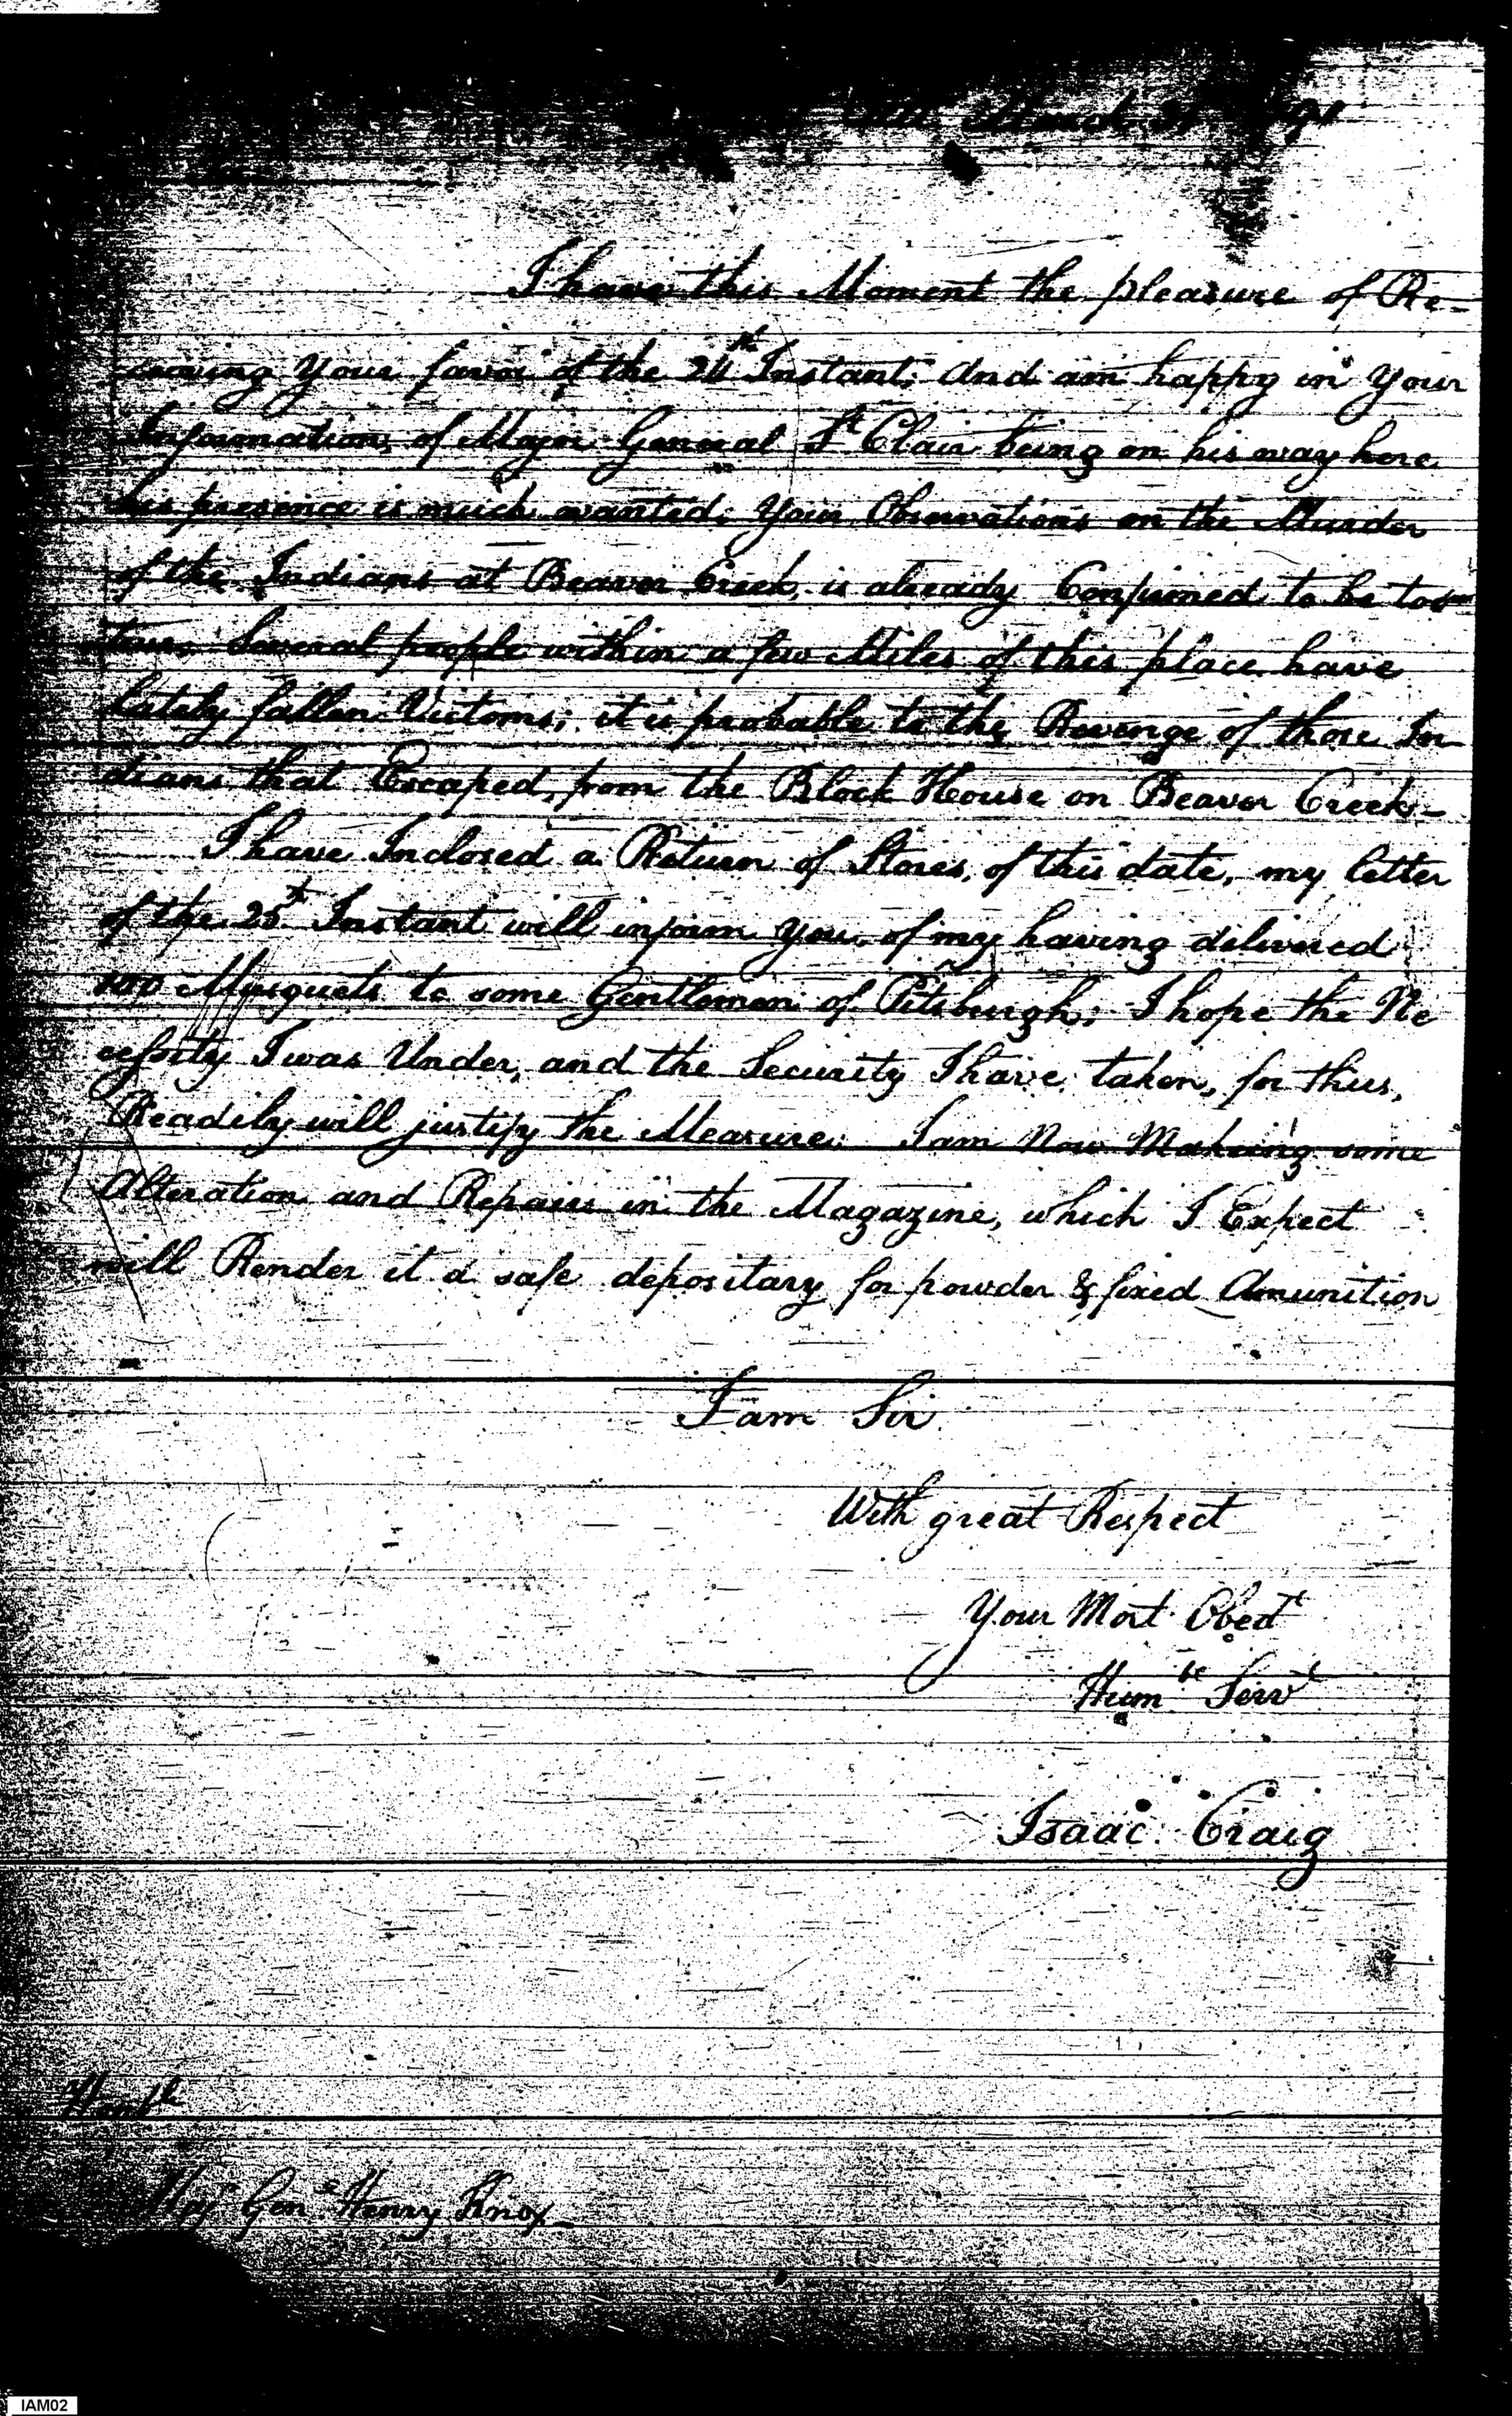 March 31 91
I have this Moment the pleasure of Re=
ceiving Your favor of the 24th Instant; And am happy in Your
Information, of Major General St Clair being on his way here
his presence is much wanted; Your Observations on the Murder
of the Indians at Beaver Creek, is already Confirmed to be too
true, Several people within a few Miles of this place have
lately fallen Victoms; it is probable to the Revenge of those In
dians that Escaped, from the Block House on Beaver Creek-
I have Inclosed a Return of Stores, of this date, my letter
of the 25th Instant will inform You, of my having delivered
100 Musquets to some Gentlemen of Pitsburgh; I hope the Ne
cessity I was Under, and the Security I have taken, for thier,
Readily will justify the Measure. I am Now Makeing some
Alteration and Repairs in the Magazine, which I Expect
will Render it a safe depositary for powder & fixed Amunition
I am Sir
With great Respect
Your Most Obedt
Humble Servt
Isaac Craig
Honble
Majr Genl Henry Knox-
IAM02